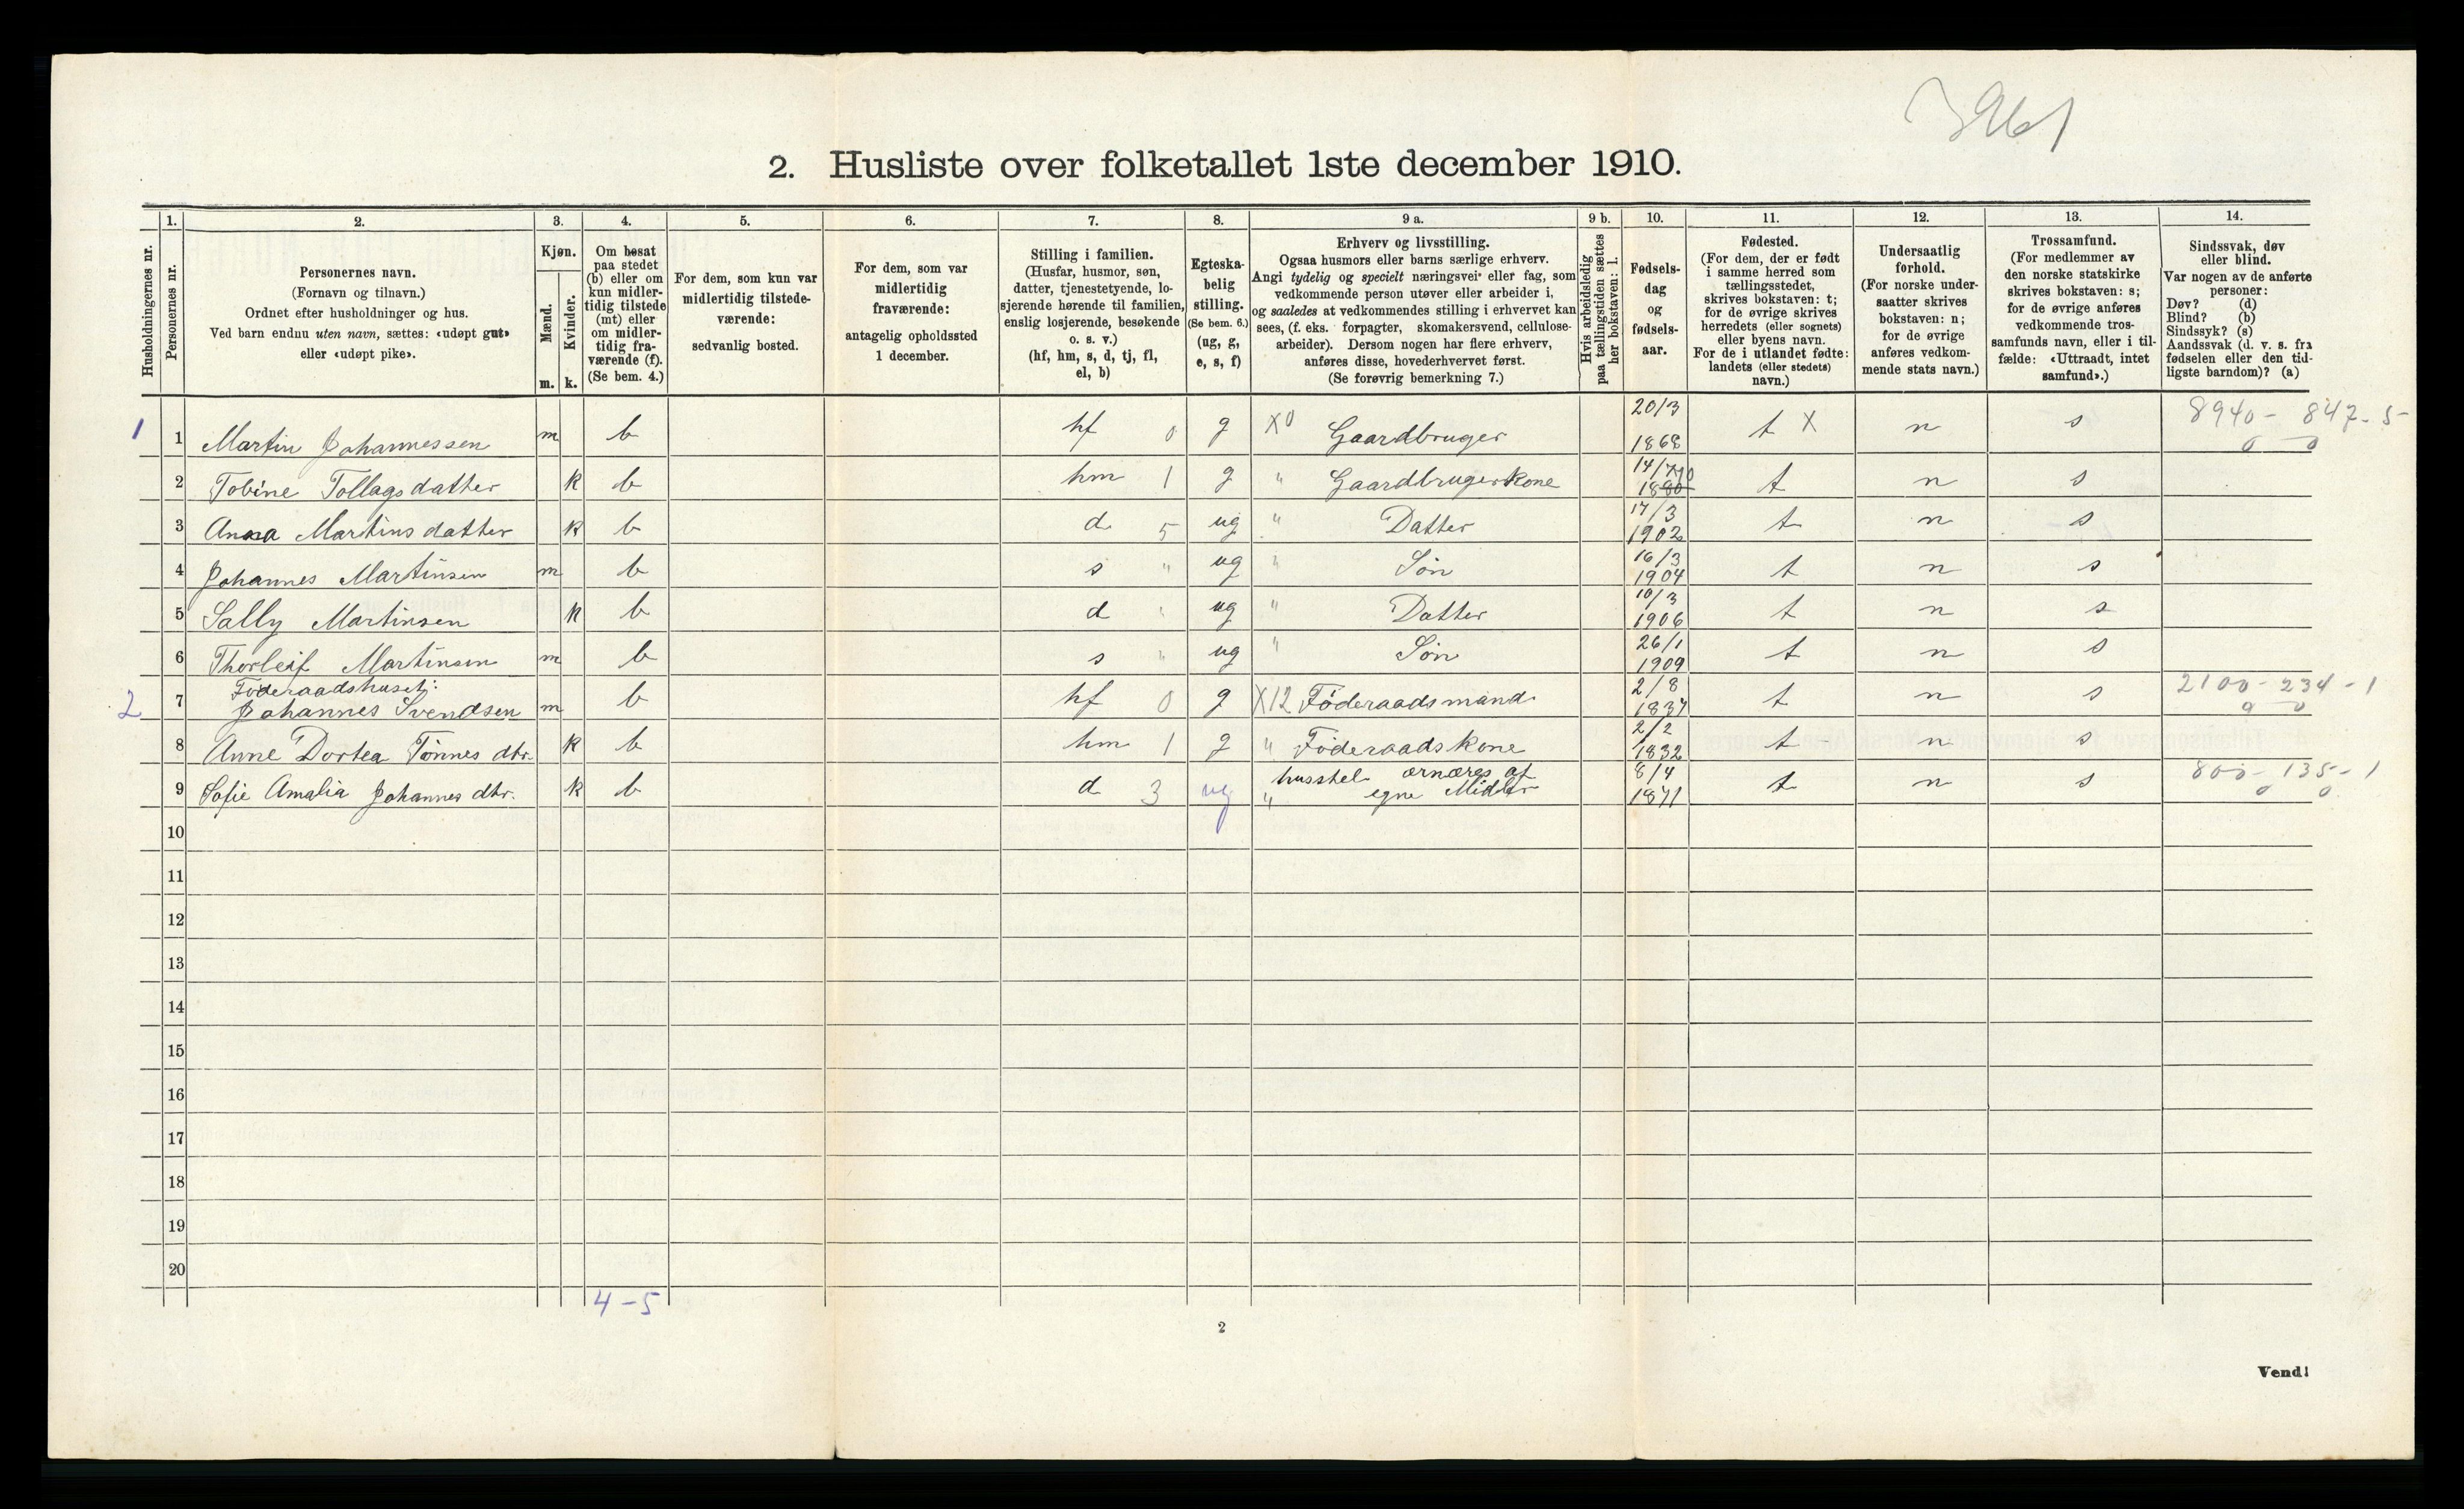 2. Husliste over folketallet 1ste december 1910.
Husholdningernes nr.
1.
Personernes nr.
2.
Personernes navn.
(Fornavn og tilnavn.)
Ordnet efter husholdninger og hus.
Ved barn endnu uten navn, sættes: «udøpt gut»
eller «udøpt pike».
3.
Kjøn.
Mænd.
Kvinder.
m. k.
4.
Om bosat
paa stedet
(b) eller om
kun midler-
tidig tilstede
(mt) eller
om midler-
tidig fra-
værende (f).
(Se bem. 4.)
5.
For dem, som kun var
midlertidig tilstede-
værende:
sedvanlig bosted.
6.
For dem, som var
midlertidig
fraværende:
antagelig opholdssted
1 december.
7.
Stilling i familien.
(Husfar, husmor, søn,
datter, tjenestetyende, lo-
sjerende hørende til familien,
enslig losjerende, besøkende
o. s. v.)
(hf, hm, s, d, tj, fl,
el, b)
8.
Egteska-
belig
stilling.
(Se bem. 6.)
(ug, g,
e, s, f)
9 a.
Erhverv og livsstilling.
Ogsaa husmors eller barns særlige erhverv.
Angi tydelig og specielt næringsvei eller fag, som
vedkommende person utøver eller arbeider i,
og saaledes at vedkommendes stilling i erhvervet kan
sees, (f. eks. forpagter, skomakersvend, cellulose-
arbeider). Dersom nogen har flere erhverv,
anføres disse, hovederhvervet først.
(Se forøvrig bemerkning 7.)
9 b.
Hvis arbeidsledig
paa tællingstiden sættes
her bokstaven: l.
10.
Fødsels-
dag
og
fødsels-
aar.
11.
Fødested.
(For dem, der er født
i samme herred som
tællingsstedet,
skrives bokstaven: t;
for de øvrige skrives
herredets (eller sognets)
eller byens navn.
For de i utlandet fødte:
landets (eller stedets)
navn.)
12.
Undersaatlig
forhold.
(For norske under-
saatter skrives
bokstaven: n;
for de øvrige
anføres vedkom-
mende stats navn.)
13.
Trossamfund.
(For medlemmer av
den norske statskirke
skrives bokstaven: s;
for de øvrige anføres
vedkommende tros-
samfunds navn, eller i til-
fælde: «Uttraadt, intet
samfund».)
14.
Sindssvak, døv
eller blind.
Var nogen av de anførte
personer:
Døv? (d)
Blind? (b)
Sindssyk? (s)
Aandssvak (d. v. s. fra
fødselen eller den tid-
ligste barndom)? (a)
1 1 Martin Johannessen m b hf 0 g X0 Gaardbruger 20/3 1868 t X n s 8940 - 847 - 5
0 0
2 Tobine Tollagsdatter k b hm 1 g " Gaardbrugerkone 14/7 t n s
3 Anna Martinsdatter k b d 5 ug " Datter 17/3 1902 t n s
4 Johannes Martinsen m b s " ug " Søn 16/3 1904 t n s
5 Sally Martinsen k b d " ug " Datter 10/3 1906 t n s
6 Thorleif Martinsen m b s " ug " Søn 26/1 1909 t n s
Føderaadshuset:
2 7 Johannes Svendsen m b hf 0 g X12 Føderaadsmand 2/8 1837 t n s 2100 - 234 - 1
0 0
8 Anne Dortea Tønnes dtr. k b hm 1 g " Føderaadskone 2/2 1832 t n s
9 Sofie Amalia Johannes dtr. k b d 3 ug " husstel ærnæres af egne Midler 8/4 1871 t n s 800 - 135 - 1
0 0
10
11
12
13
14
15
16
17
18
19
20
4 - 5
2
Vend!